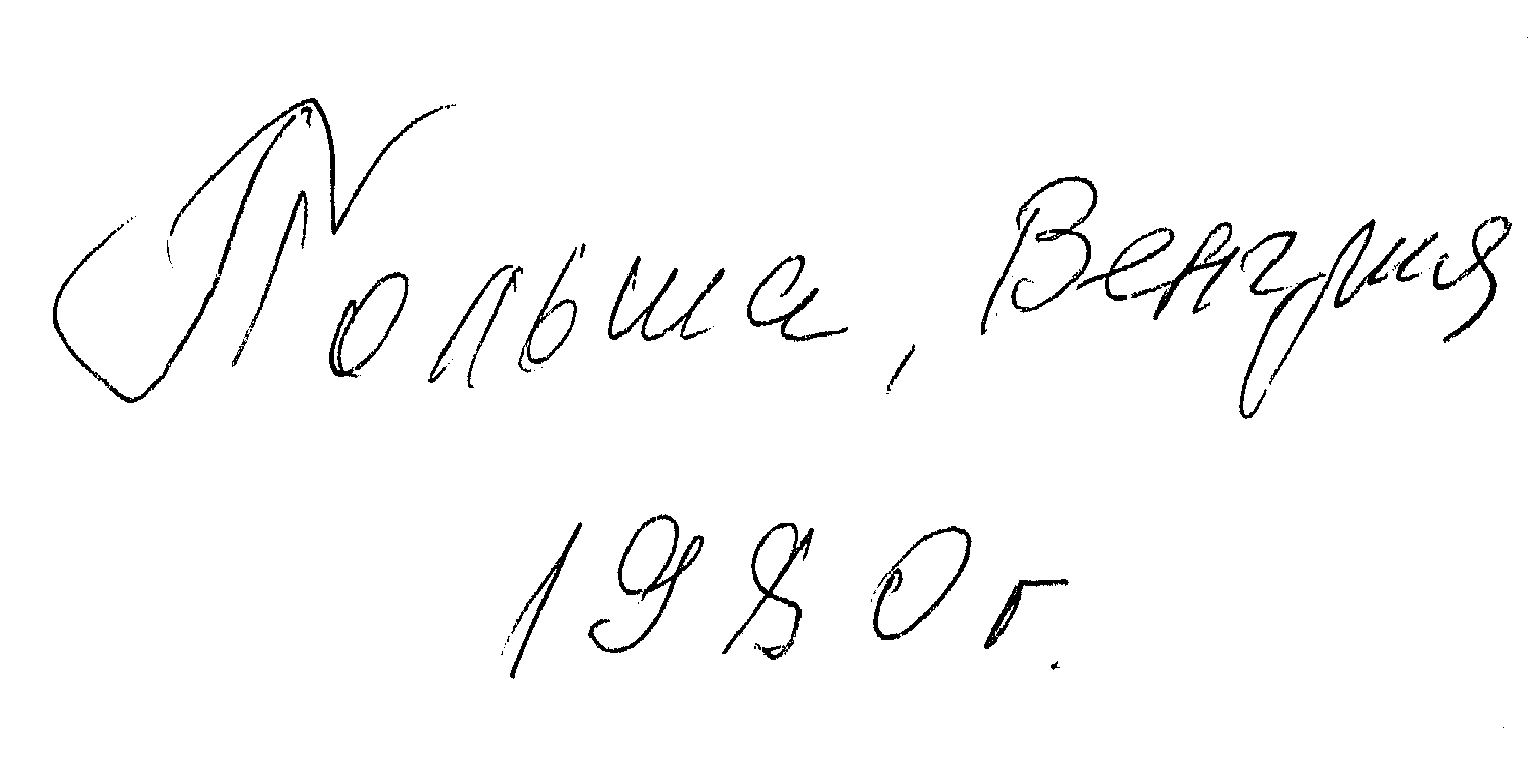 Польша, Венгрия
1980г.